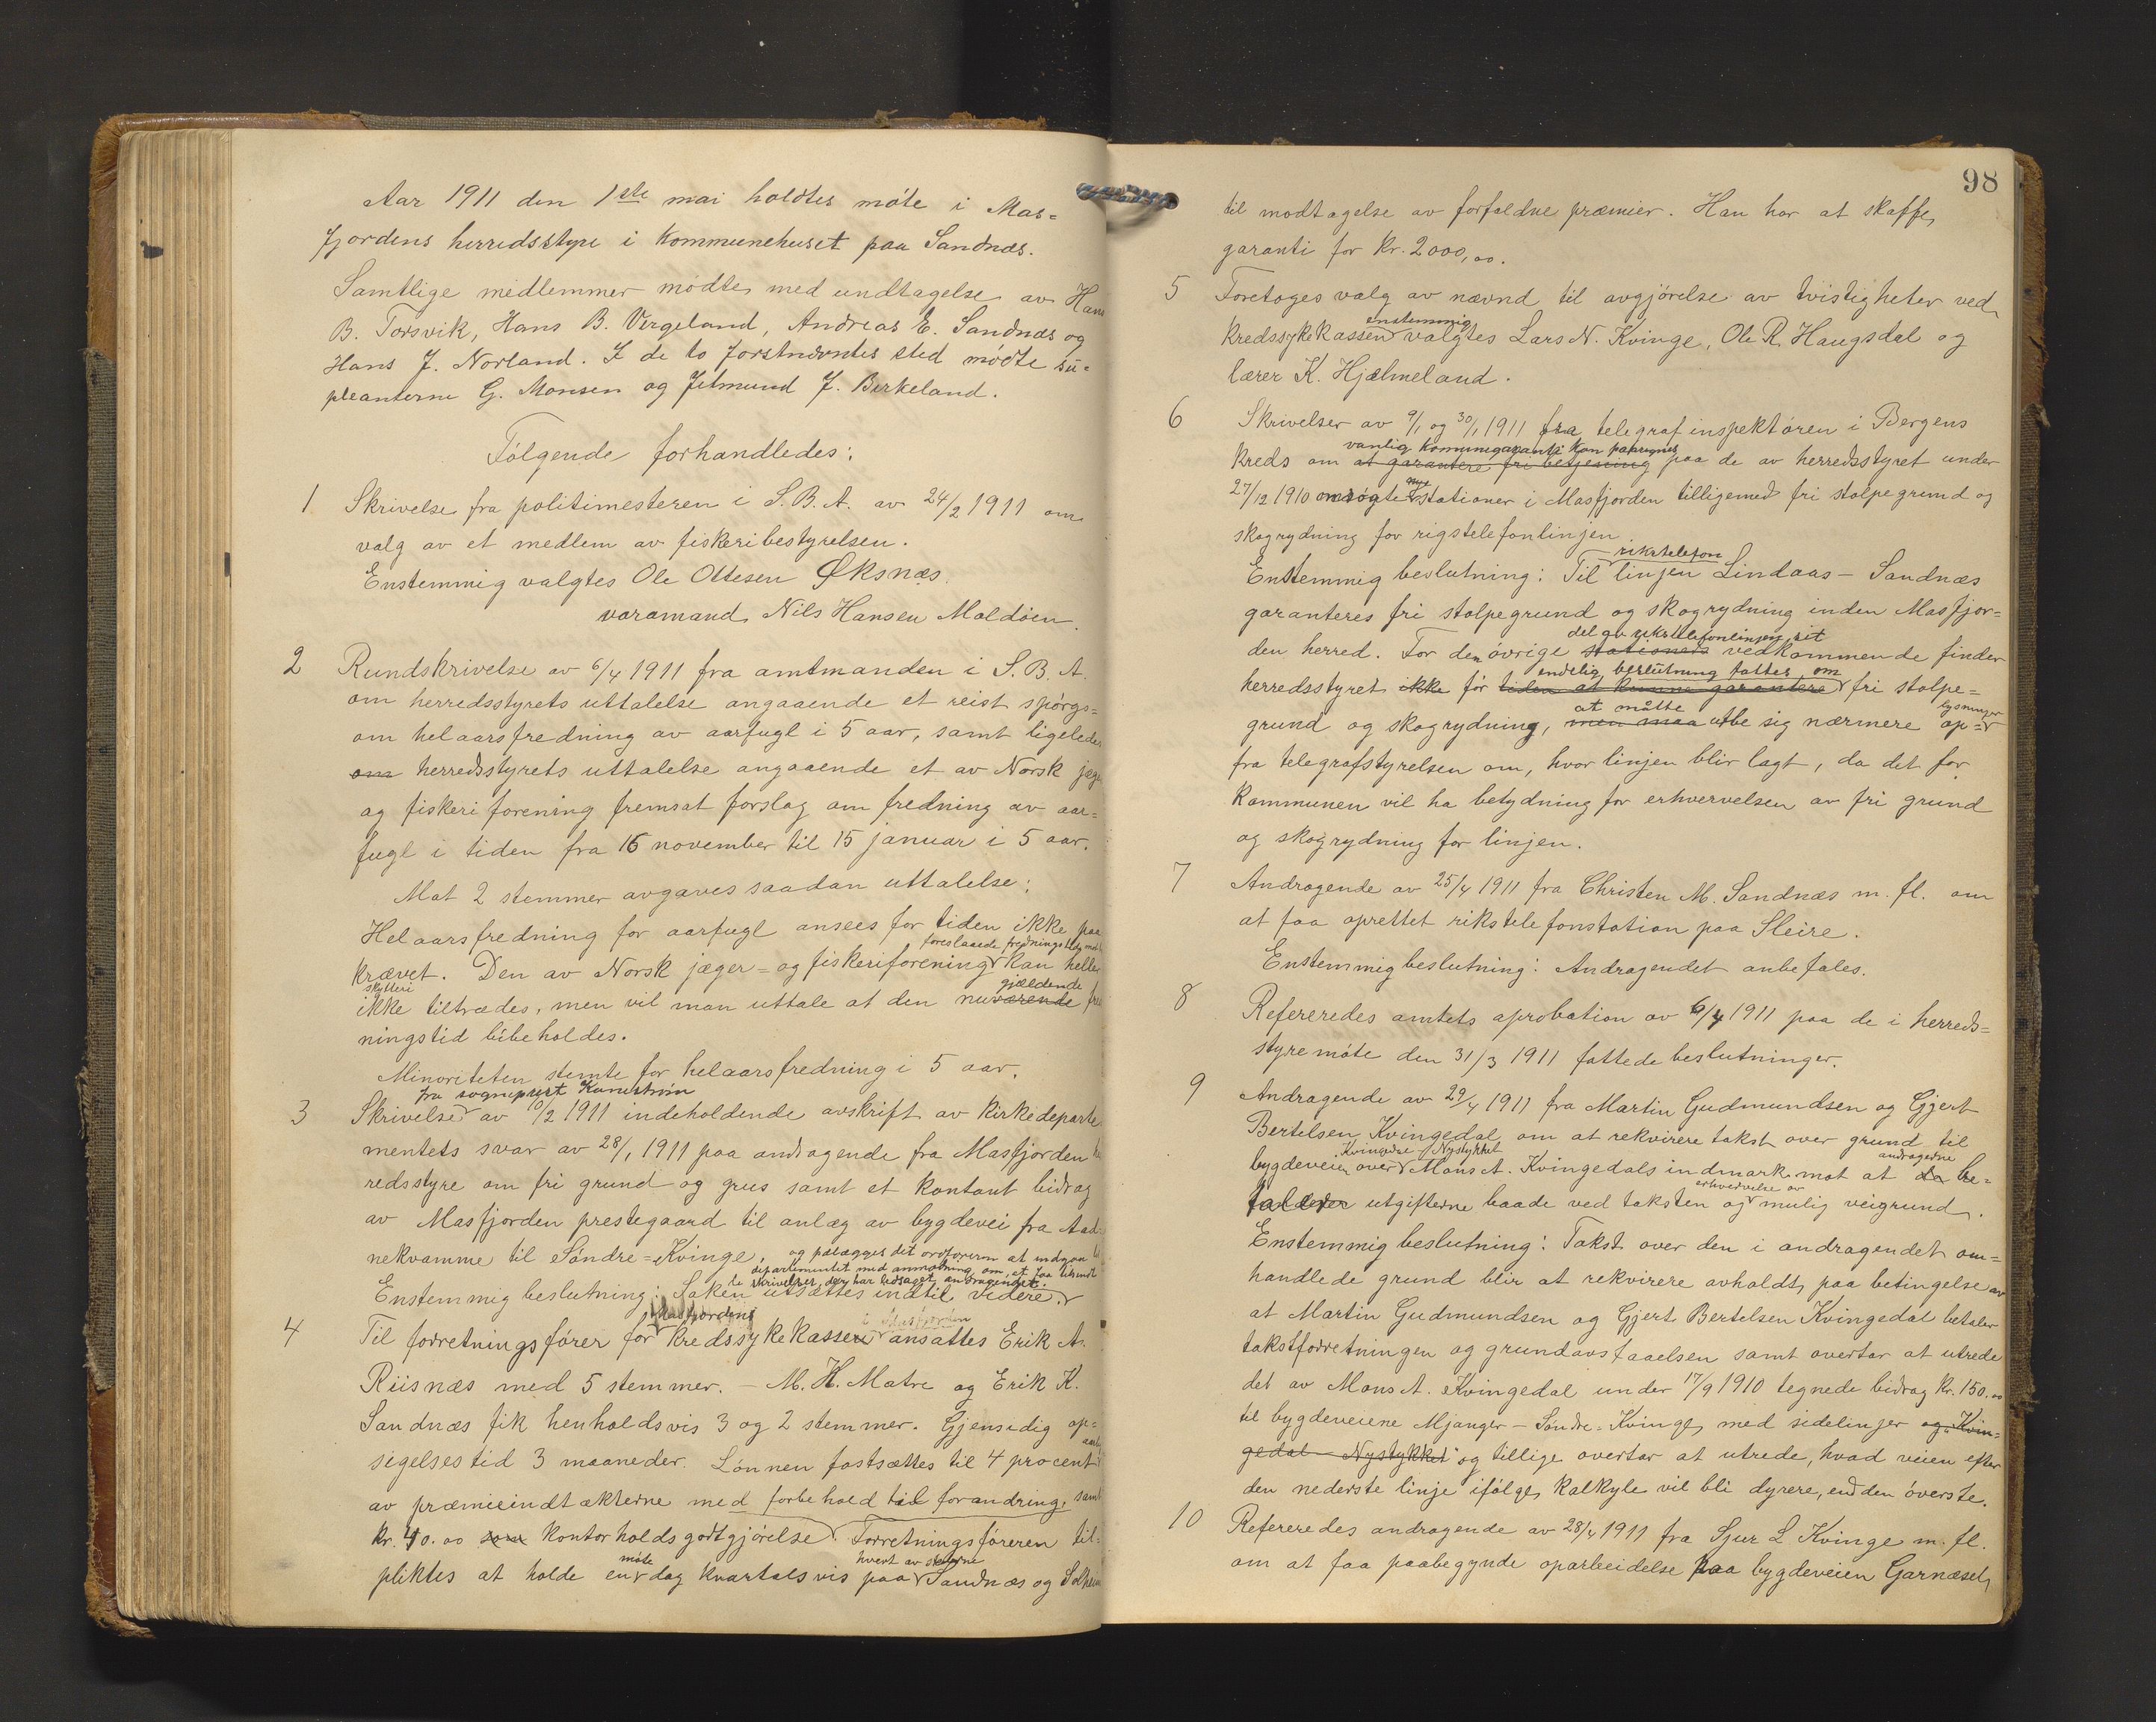 Aar 1911 den 1ste mai holdtes møte i Mas=
fjordens herredsstyre i kommunehuset paa Sandnæs.
Samtlige medlemmer mødte med undtagelse av Hans
B. Torsvik, Hans B. Vergeland, Andreas E. Sandnæs og
Hans J. Norland. I de to førstnævntes sted mødte su=
pleanterne G. Monsen og Jetmund J. Birkeland.
Følgende forhandledes:
1 Skrivelse fra politimesteren i S. B. A. av 24/2 1911 om
valg av et medlem av fiskeribestyrelsen.
Enstemmig valgtes Ole Ottesen Øksnæs.
varamand Nils Hansen Maldøen.
2 Rundskrivelse av 6/4 1911 fra amtmanden i S. B. A.
om herredsstyrets uttalelse angaaende et reist spørgs=
om helaarsfredning av aarfugl i 5 aar, samt ligeledes
om herredsstyrets uttalelse angaaende et av Norsk jæger
og fiskeriforening fremsat forslag om fredning av aar=
fugl i tiden fra 16 november til 15 januar i 5 aar.
Mot 2 stemmer avgaves saadan uttalelse:
Helaarsfredning for aarfugl ansees for tiden ikke paa
foreslaaede fredningstid
krævet. Den av Norsk jæger= og fiskeriforening kan heller
gjældende
ikke tiltrædes, men vil man uttale at den nuværende
ningstid bibeholdes.
Minoriteten stemte for helaarsfredning i 5 aar.
fra sogneprest
3 Skrivelse av 10/2 1911 indeholdende avskrift av kirkedeparte
mentets svar av 28/1 1911 paa andragende fra Masfjorden
redsstyre om fri grund og grus samt et kontant bidrag
av Masfjorden prestegaard til anlæg av bygdevei fra Aad=
nekvamme til Søndre=Kvinge.
og paalægges det ordføreren at indgaa
departementet med anmodning om, at faa tilsendt
de skrivelser, der har ledsaget andragendet.
Enstemmig beslutning: Saken utsættes indtil videre.
Masfjordens
4 Til forretningsfører for kredssykekassen ansattes Erik A.
Riisnæs med 5 stemmer. — M. H. Matre og Erik K.
Sandnæs fik henholdsvis 3 og 2 stemmer. Gjensidig op=
sigelsestid 3 maaneder. Lønnen fastsættes til 4 procent
av præmieindtækterne med forbehold til forandring, samt
kr. 40.00 som kontorholdsgodtgjørelse. Forretningsføreren til=
møte hvert av stederne
pliktes at holde en dag kvartalsvis paa Sandnæs og Solheim
98
til modtagelse av forfaldne præmier. Han har at skaffe
garanti for kr. 2000,00.
5 Foretoges valg av nævnd til avgjørelse av tvistigheter ved
enstemmig
kredssykekassen valgtes Lars N. Kvinge, Ole R. Haugsdal og
lærer K. Hjælmeland.
6 Skrivelser av 9/1 og 30/1 1911 fra telegrafinspektøren i Bergens
vanlig kommunegaranti kan paaregnes
kreds om at garantere fri betjening paa de av herredsstyret under
nye
27/12 1910 ansøgte stationer i Masfjorden tilligemed fri stolpegrund og
skogrydning for rigstelefonlinjen
rikstelefon
Enstemmig beslutning: Til linjen Lindaas — Sandnæs
garanteres fri stolpegrund og skogrydning inden Masfjor=
del av rikstelefonlinjen
den herred. For den øvrige stationers vedkommende finder
endelig beslutning fattes om
herredsstyret ikke før tiden at kunne garantere fri stolpe=
at måtte lysninger
grund og skogrydning, men maa utbe sig nærmere op=
fra telegrafstyrelsen om, hvor linjen blir lagt, da det for
kommunen vil ha betydning for erhvervelsen av fri grund
og skogrydning for linjen.
7 Andragende av 25/4 1911 fra Christen M. Sandnæs m. fl. om
at faa oprettet rikstelefonstation paa Sleire.
Enstemmig beslutning: Andragendet anbefales.
8 Refereredes amtets aprobation av 6/4 1911 paa de i herreds=
styremøte den 31/3 1911 fattede beslutninger.
9 Andragende av 29/4 1911 fra Martin Gudmundsen og Gjert
Bertelsen Kvingedal om at rekvirere takst over grund til
Kvingedal–Nystykket andragerne
bygdeveien over Mons A. Kvingedals indmark mot at de be=
erhvervelse av
taler utgifterne baade ved taksten og mulig veigrund.
Enstemmig beslutning: Takst over den i andragendet om=
handlede grund blir at rekvirere avholdt, paa betingelse av
at Martin Gudmundsen og Gjert Bertelsen Kvingedal betaler
takstforretningen og grundavstaaelsen samt overtar at utrede
det av Mons A. Kvingedal under 17/9 1910 tegnede bidrag kr. 150.00
til bygdeveiene Mjanger — Søndre=Kvinge med sidelinjer og Kvin=
gedal — Nystykket og tillige overtar at utrede, hvad veien efter
den nederste linje ifølge kalkyle vil bli dyrere, end den øverste.
10 Refereredes andragende av 28/4 1911 fra Sjur L Kvinge m. fl.
om at faa paabegynde oparbeidelse paa bygdeveien Garnæsel,